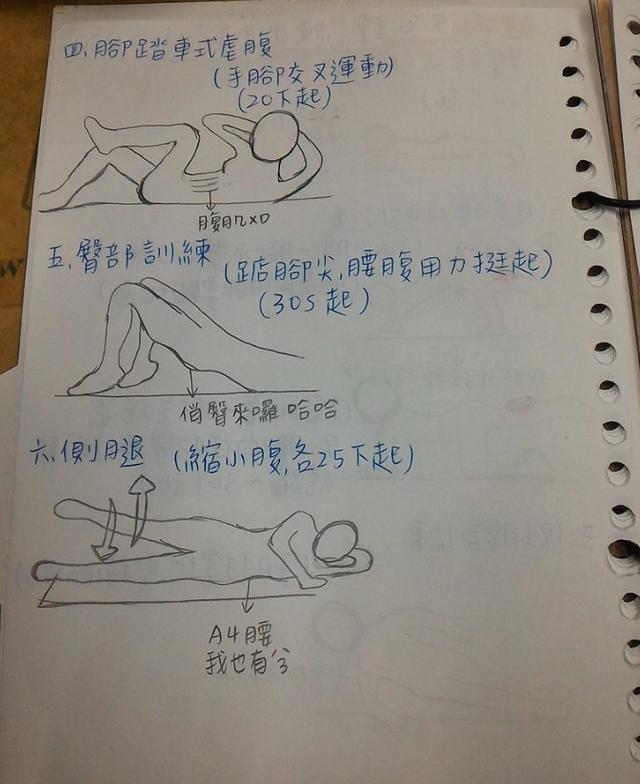 四、腳踏車式虐腹
(手腳交叉運動)
(20下起)
腹肌XD
五、臀部訓練 (踮腳尖,腰腹用力挺起)
(30S起)
俏臀來囉哈哈
六、側腿 (縮小腹,各25下起)
A4腰
我也有